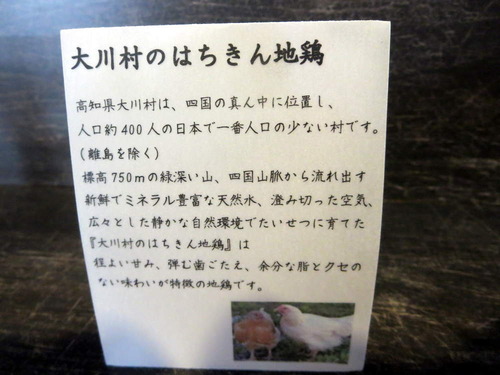 大川村のはちきん地鶏
高知県大川村は、四国の真ん中に位置し、
人口約400人の日本で一番人口の少ない村です。
(離島を除く)
標高750mの緑深い山、四国山脈から流れ出す
新鮮でミネラル豊富な天然水、澄み切った空気、
広々とした静かな自然環境でたいせつに育てた
『大川村のはちきん地鶏』は
程よい甘み、弾む歯ごたえ、余分な脂とクセの
ない味わいが特徴の地鶏です。